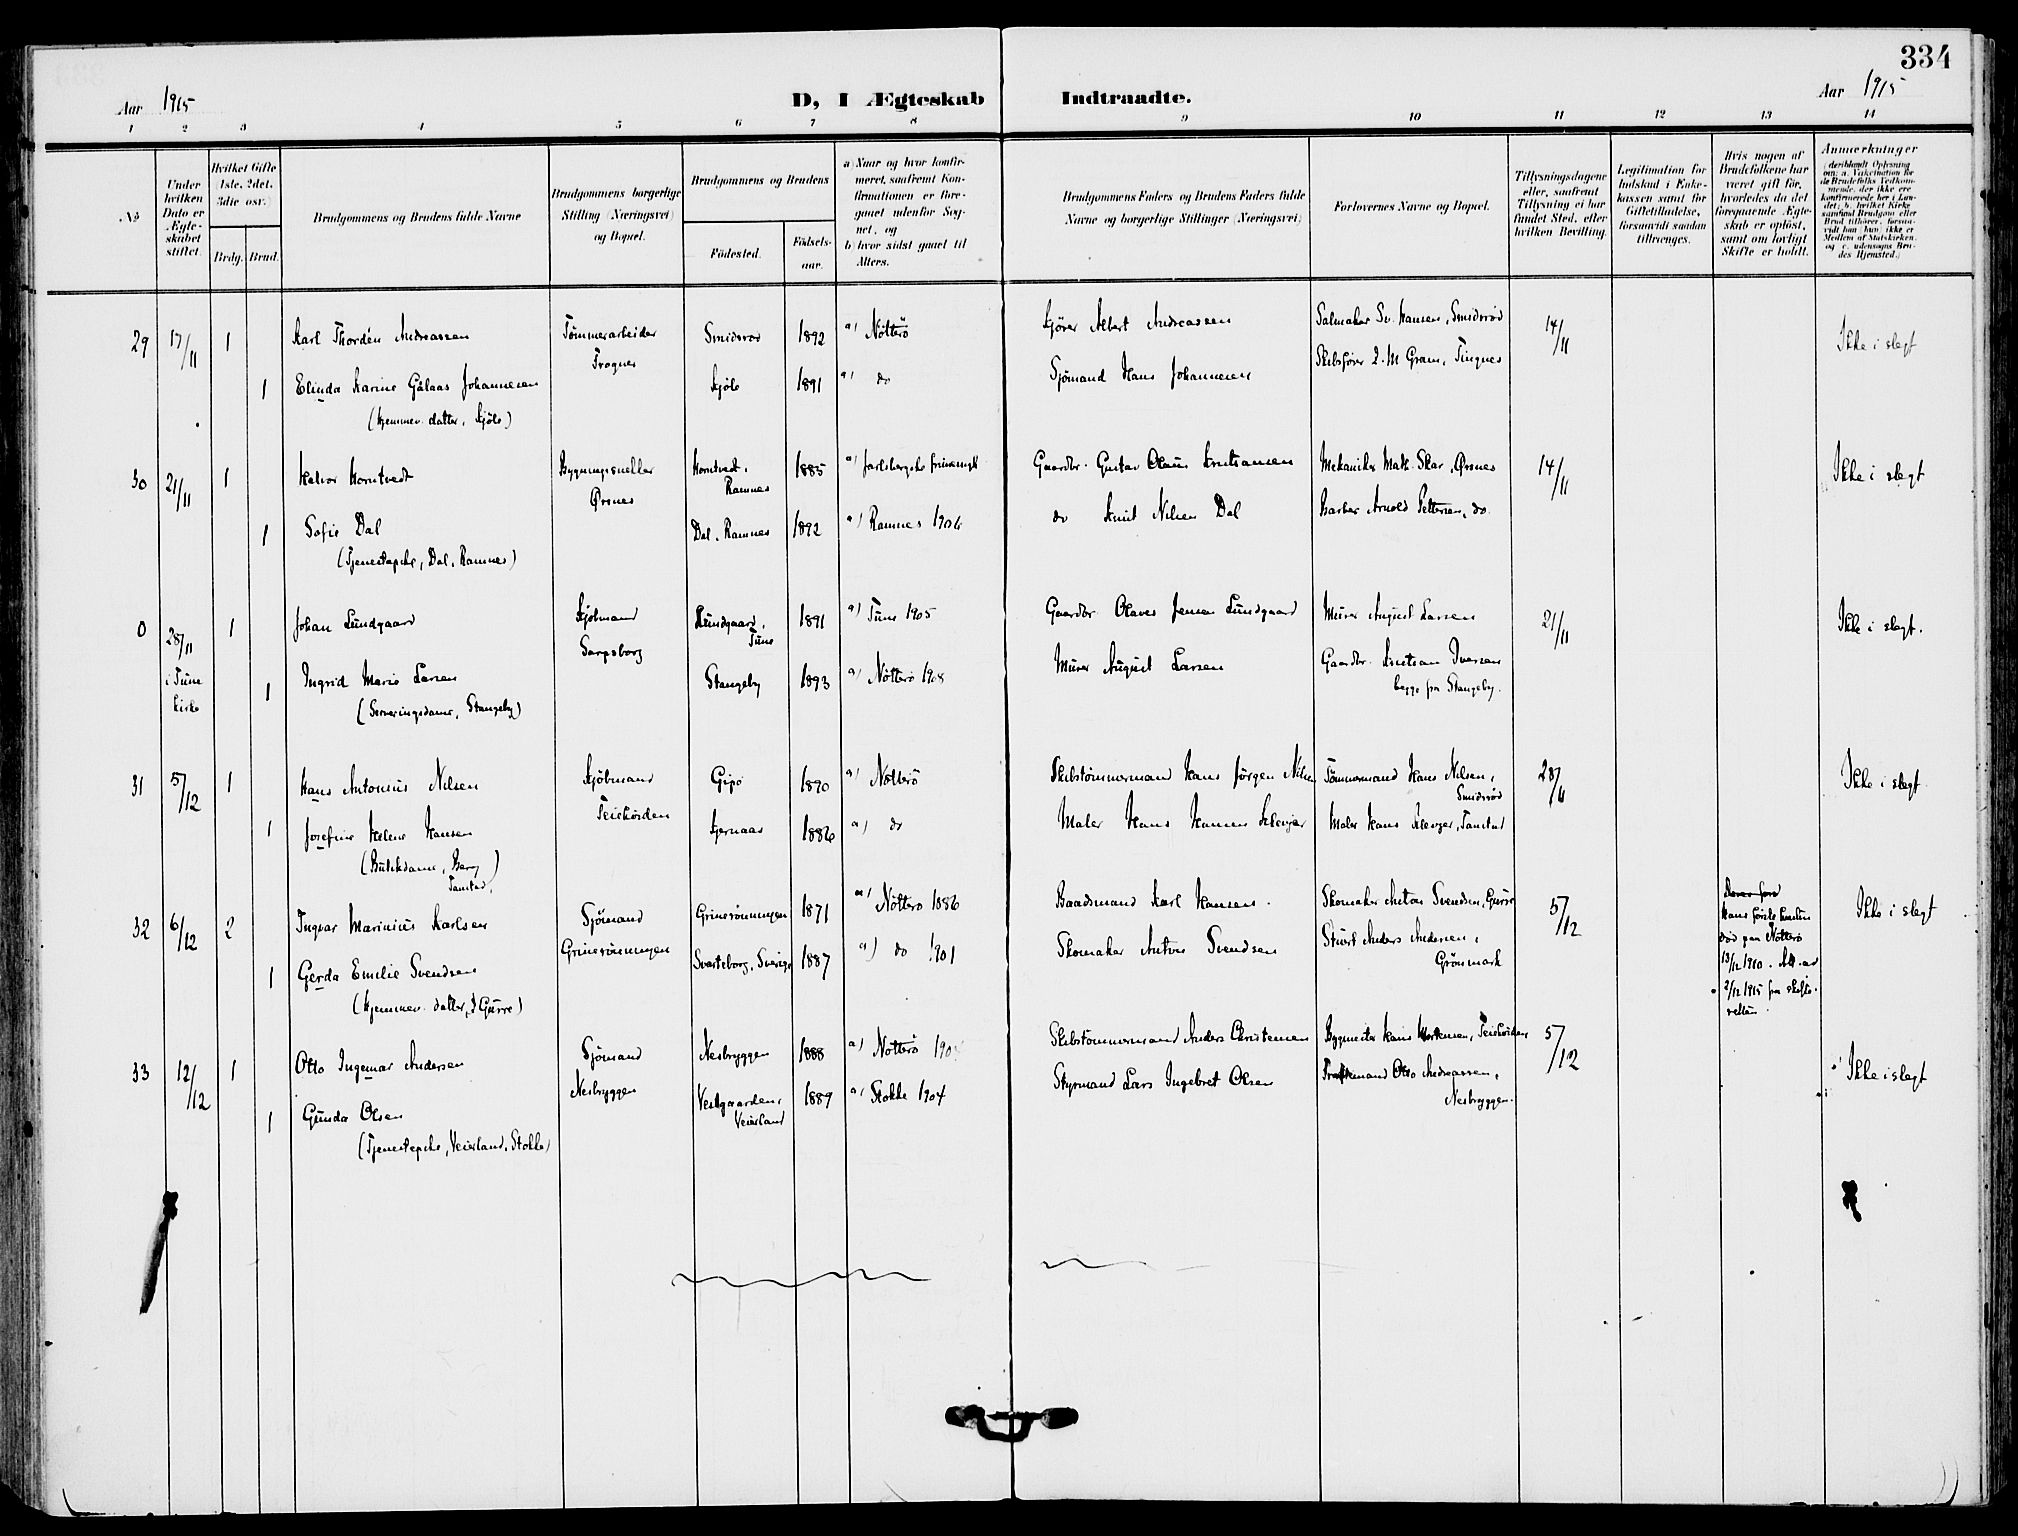 334
Aar 1915
D, I Ægteskab Indtraadte.
Aar 1915
1 2 3 4 5 6 7 8 9 10 11 12 13 14
No
Under hvilken Dato er Ægteskabet stiftet.
Hvilket Gifte 1ste, 2det, 3die osv.)
Brdg. Brud.
Brudgommens og Brudens fulde Navne
Brudgommens borgerlige Stilling (Næringsvei) og Bopæl.
Brudgommens og Brudens
Fødested.
Fødselsaar.
a) Naar og hvor konfirmeret, saafremt Konfirmationen er foregaaet udenfor Sognet, og
b) hvor sidst gaaet til Alters.
Brudgommens Faders og Brudens Faders fulde Navne og borgerlige Stillinger (Næringsvei)
Forlovernes Navne og Bopæl.
Tillysningsdagene eller, saafremt Tillysning ei har fundet Sted, efter hvilken Bevilling.
Legitimation for Indskud i Enkekassen samt for Giftetilladelse, forsaavidt saadan tiltrænges.
Hvis nogen af Brudefolkene har været gift før, hvorledes da det foregaaende Ægteskab er opløst, samt om lovligt Skifte er holdt.
Anmerkninger
29 17/11 1 Karl Thordén Andreassen Tømmerarbeider Smidsrød 1892 a) Nøtterø Kjører Albert Andreassen Salmaker Sv. Hansen, Smidsrød 14/11 Ikke i slegt
Trognes Skibsfører I. M Gram, Tingnes
1 Elinda Karine Gålaas Johannesen Kjøle 1891 a) do Sjømand Hans Johannesen
(Hjemmev. datter, Kjøle)
30 21/11 1 Halvor Horntvedt Bygningssneller Horntvedt, 1885 a) Jarlsbergske frimenigh. Gaardbr. Gustav Olaus Kristiansen Mekaniker Math. Skar, Ørsnes 14/11 Ikke i slegt
Ørsnes Ramnes
1 Sofie Dal Dal, Ramnes 1892 a) Ramnes 1906 do Knut Nilsen Dal Barber Arnold Pettersen, do.
(Tjenestepike, Dal, Ramnes)
0 28/11 1 Johan Lundgaard Kjøbmand Lundgaard, 1891 a) Tune 1905 Gaardbr. Olaves Jensen Lundgaard Murer August Larsen 21/11 Ikke i slegt.
Sarpsborg Tune
i Tune 1 Ingrid Marie Larsen Stangeby 1893 a) Nøtterø 1908 Murer August Larsen Gaardbr. Kristian Iversen
kirke (Serveringsdame, Stangeby) begge fra Stangeby.
31 5/12 1 Hans Antonius Nilsen Kjøbmand Gipø 1890 a) Nøtterø Skibstømmermand Hans Jørgen Nilsen Tømmermand Hans Nilsen, 28/11 Ikke i slegt
Teiekirden Smidsrød
1 Josefine Helene Hansen Kjernaas 1886 a) do Maler Hans Hansen Klevjer Maler Hans Klevjer, Tanstad
(Butikdame, Berg
Tanstad)
32 6/12 2 Ingvar Marinius Karlsen Sjømand Grinerønningen 1871 a) Nøtterø 1886 Baadsmand Karl Hansen. Skomaker Anton Svendsen, Gurre 5/12 Ikke i slegt
Hans første hustru
død paa Nøtterø
13/12 1910. Att. av
2/12 1915 fra skifte-
retten.
Grinerønningen
1 Gerda Emilie Svendsen Svarteborg, Sverige 1887 a) do 1901 Skomaker Anton Svendsen Stuert Anders Andersen,
(Hjemmev. datter, Gurre) Grønmark
33 12/12 1 Otto Ingemar Andersen Sjømand Nesbryggen 1888 a) Nøtterø Skibstømmermand Anders Christensen Bygmester Hans Mortensen, Teiekirden 5/12 Ikke i slegt
Nesbryggen
1 Gunda Olsen Vestgaarden, 1889 a) Stokke 1904 Styrmand Lars Ingebret Olsen Otto Andreassen,
Veierland Nesbryggen.
(Tjenestepike, Veierland, Stokke)